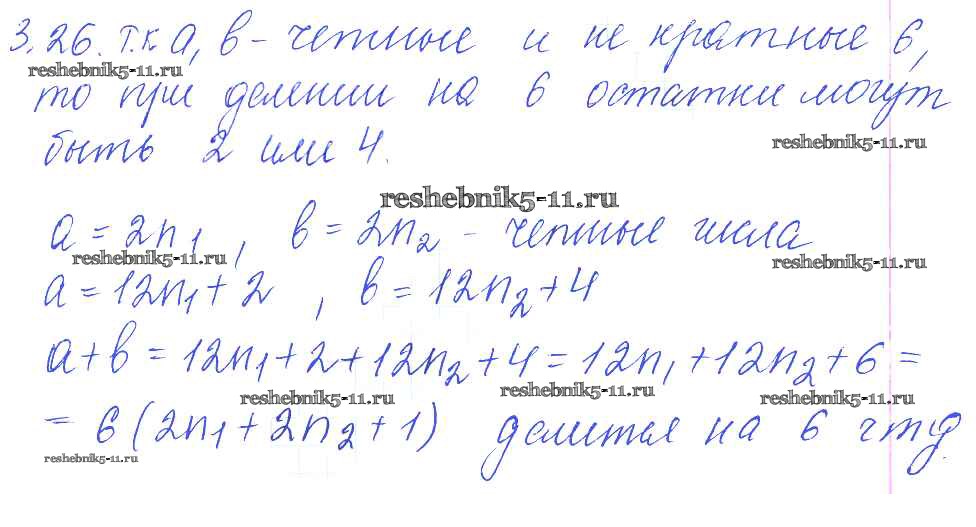 3.26. т.к а, в - четные и не кратные 6,
reshebnik5-11.ru
то при делении на 6 остатки могут
быть 2 или 4.
reshebnik5-11.ru
reshebnik5-11.ru
а = 2n₁ , в = 2n₂ - четные числа
reshebnik5-11.ru
reshebnik5-11.ru
а = 12n₁ + 2 , в = 12n₂ + 4
а + в = 12n₁ + 2 + 12n₂ + 4 = 12n₁ + 12n₂ + 6 =
reshebnik5-11.ru
reshebnik5-11.ru
reshebnik5-11.ru
= 6 (2n₁ + 2n₂ + 1) делится на 6 чтд.
reshebnik5-11.ru